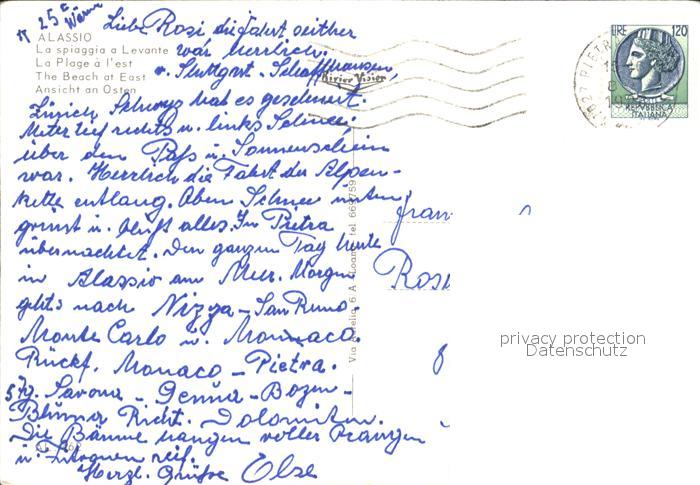 25° Wärme
ALASSIO
La spiaggia a Levante
La Plage à l'est
The Beach at East
Ansicht an Osten
Liebe Rosi, die Fahrt seither
war herrlich.
Stuttgart - Schaffhausen,
Zürich Schwyz hat es geschneit.
Meter tief rechts u. links Schnee,
über den Paß u. Sonnenschein
war. Herrlich die Fahrt der Alpen-
kette entlang. Oben Schnee unten
grünt u. blüht alles. In Pietra
übernachtet. Den ganzen Tag heute
in Alassio am Meer. Morgen
geht's nach Nizza - San Remo
Monte Carlo u. Monaco.
Rückf. Monaco - Pietra.
Savona - Genua - Bozen -
Richt. Dolomiten.
Die Bäume hangen voller Orangen
u. Zitronen reif.
Herzl. Grüße Else
Rivier
LIRE 120
REPVBBLICA
ITALIANA
PIETR
Via Aurelia, 6 A Loano tel 669759
Rosi
privacy protection
Datenschutz